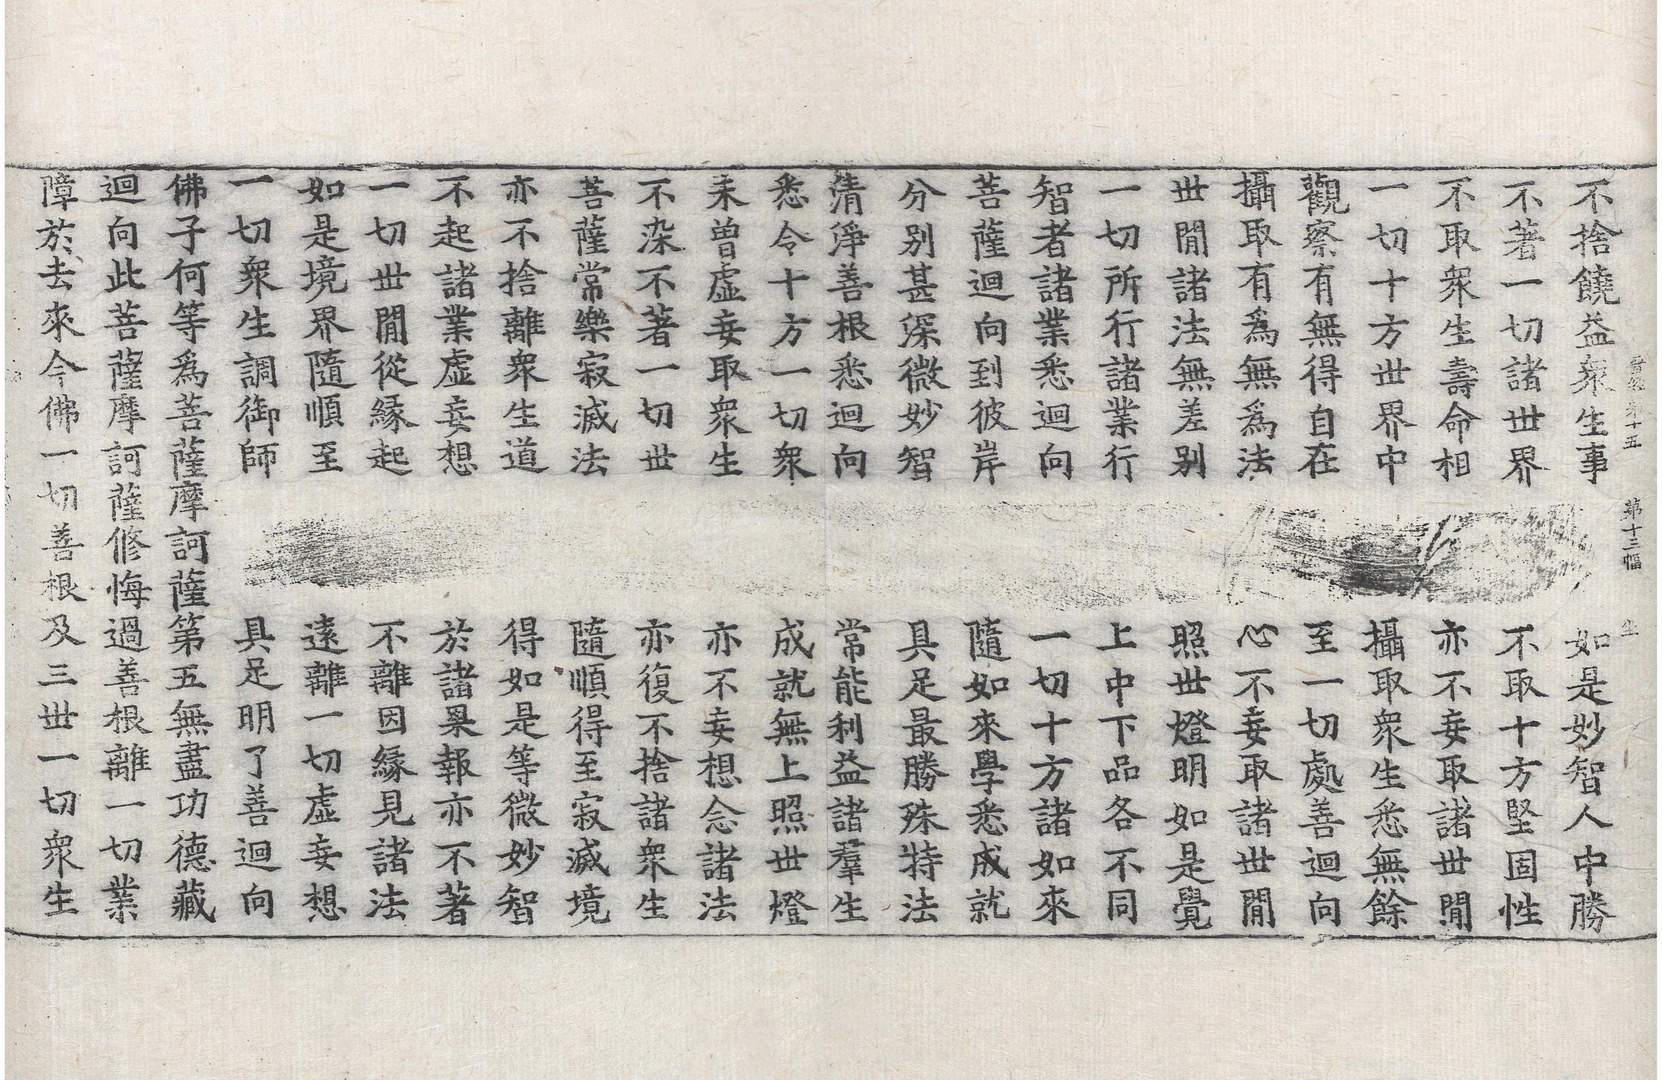 晉經第十五 第十三幅 生
不捨饒益衆生事 如是妙智人中勝
不著一切諸世界 不取十方堅固性
不取衆生壽命相 亦不妄取諸世間
一切十方世界中 攝取衆生悉無餘
觀察有無得自在 至一切處善迴向
攝取有爲無爲法 心不妄取諸世間
世間諸法無差别 照世燈明如是覺
一切所行諸業行 上中下品各不同
智者諸業悉迴向 一切十方諸如來
菩薩迴向到彼岸 隨如來學悉成就
分别甚深微妙智 具足最勝殊特法
清淨善根悉迴向 常能利益諸羣生
悉令十方一切衆 成就無上照世燈
未曾虛妄取衆生 亦不妄想念諸法
不染不著一切世 亦復不捨諸衆生
菩薩常樂寂滅法 隨順得至寂滅境
亦不捨離衆生道 得如是等微妙智
不起諸業虛妄想 於諸果報亦不著
一切世間從緣起 不離因緣見諸法
如是境界隨順至 遠離一切虛妄想
一切衆生調御師 具足明了善迴向
佛子何等爲菩薩摩訶薩第五無盡功德藏
迴向此菩薩摩訶薩修悔過善根離一切業
障於去來今佛一切善根及三世一切衆生